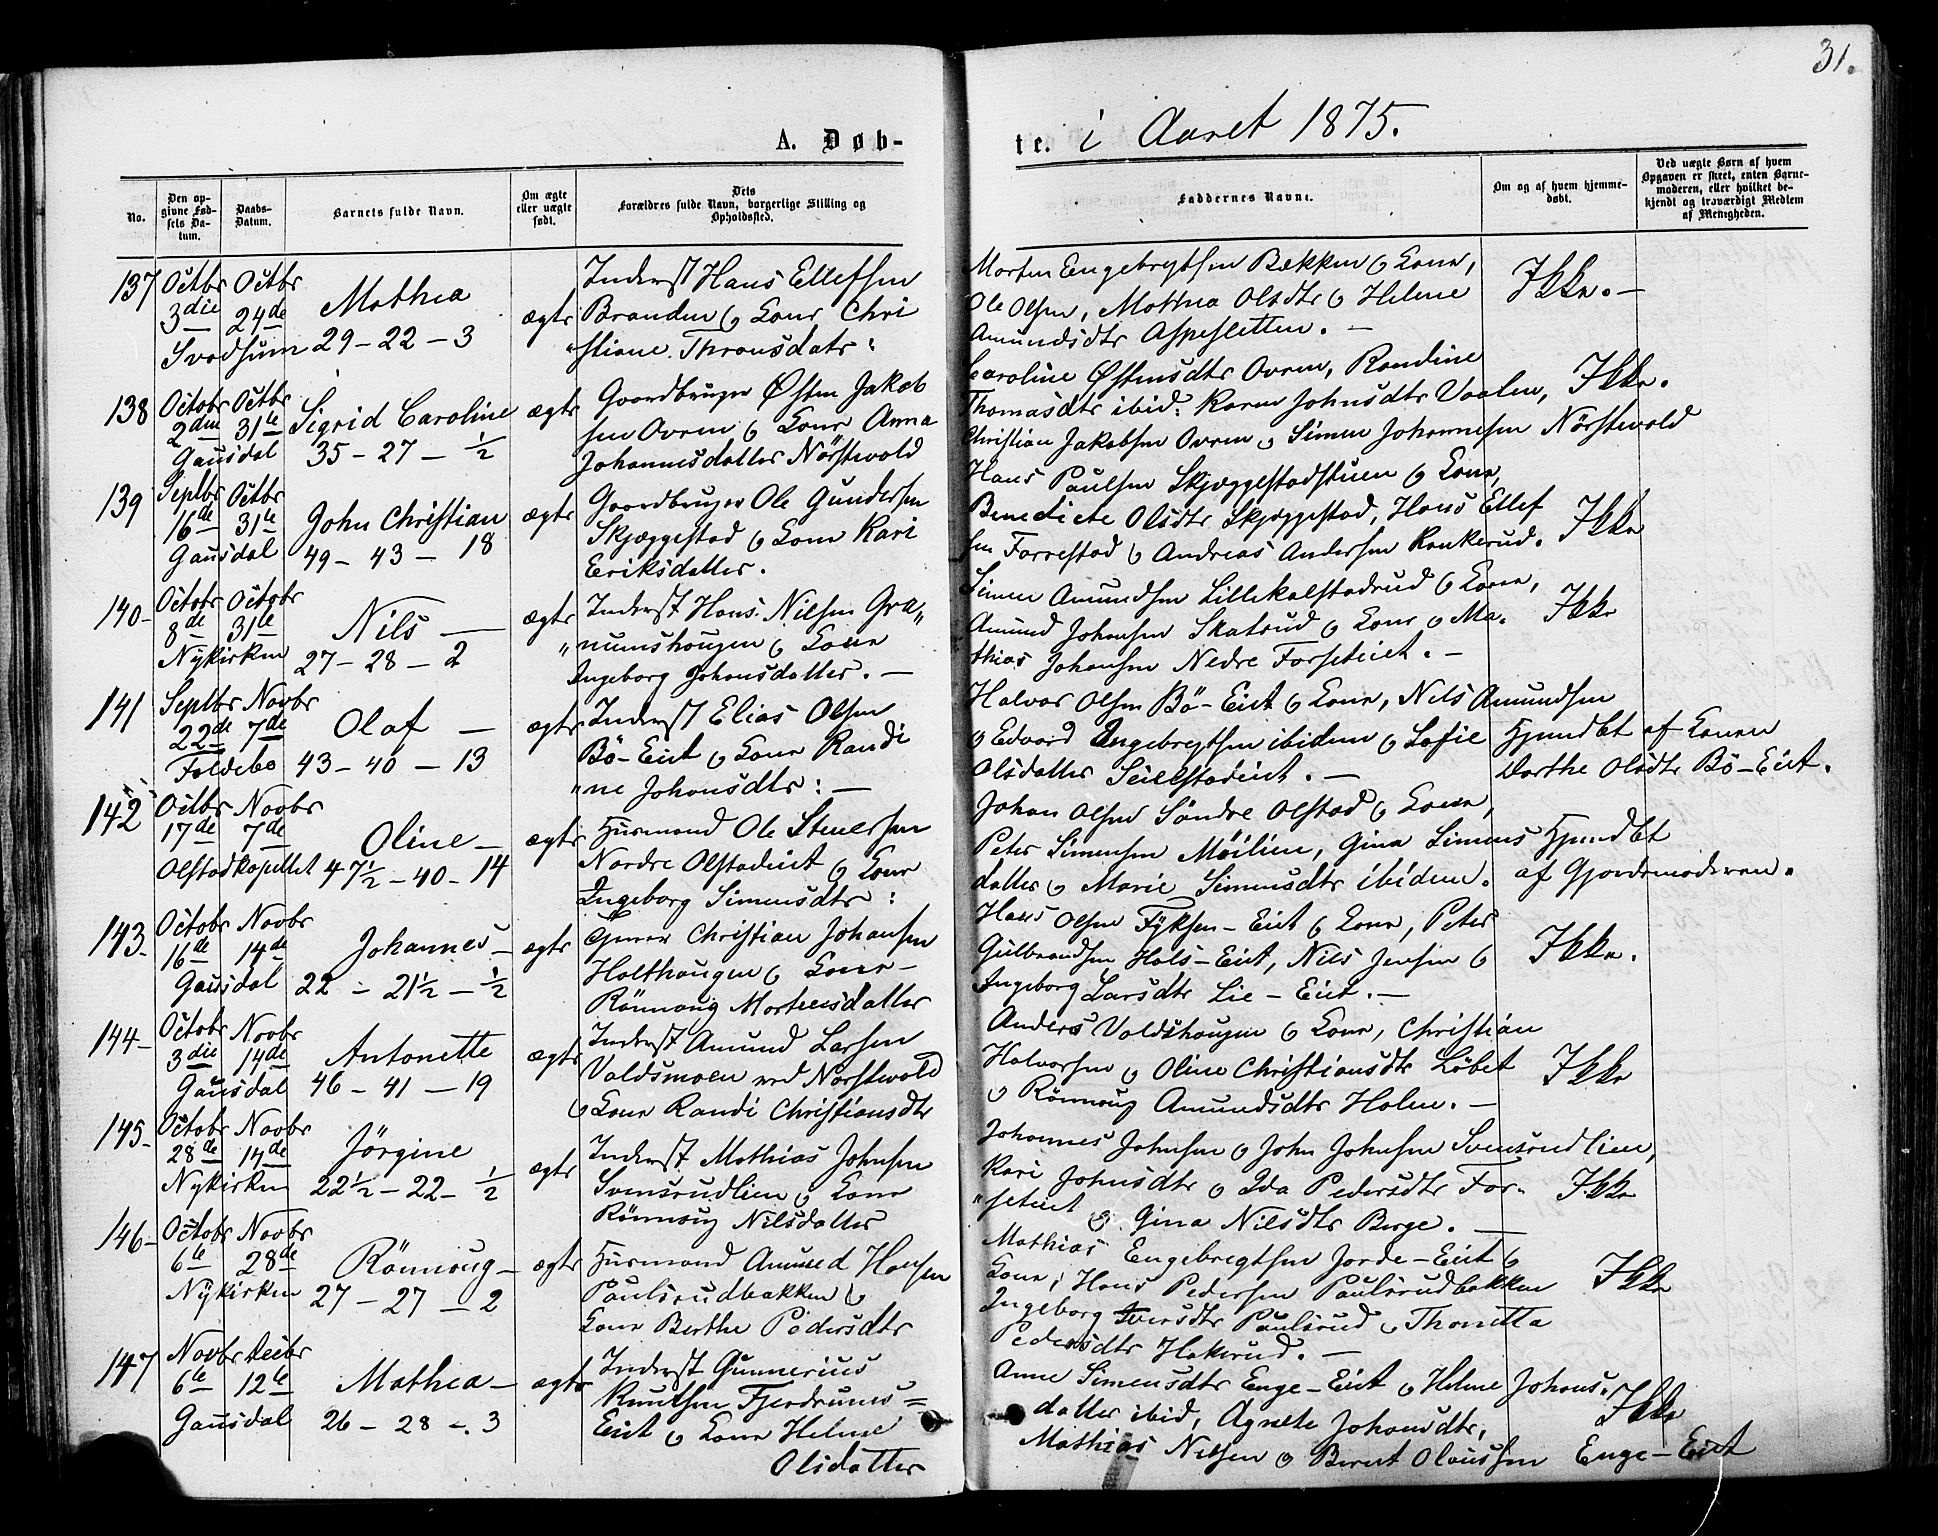 31.
A. Døb-
te. i Aaret 1875.
No.
Den op-
givne Fød-
sels Da-
tum.
Daabs-
Datum.
Barnets fulde Navn.
Om ægte
eller uægte
født.
Dets
Forældres fulde Navn, borgerlige Stilling og
Opholdssted.
Faddernes Navne.
Om og af hvem hjemme-
døbt.
Ved uægte Børn af hvem
Opgaven er skeet, enten Barne-
moderen, eller hvilket be-
kjendt og troværdigt Medlem
af Menigheden.
137
Octbr
3die
Svadsum
Octbr
24de
Mathea
29 - 22 - 3
ægte
Inderst Hans Ellefsen
Branden og Kone Chri
"stiane Thronsdatr:
Morten Engebregtsen Bækken og Kone,
Ole Olsen, Mathea Olsdtr og Helene
Amundsdtr Aspesletten. -
Ikke. -
138
Octobr
2den
Gausdal
Octbr
31te
Sigrid Caroline
35 - 27 - ½
ægte
Gaardbruger Østen Jakob
sen Ovren og Kone Anna
Johannesdatter Nörstevold
Caroline Østensdtr Ovren, Randine
Thomasdtr ibid: Karen Johnsdtr Vaalen,
Christian Jakobsen Ovren og Simen Johannesen Nörstevold
Ikke.
139
Septbr
16de
Gausdal
Octbr
31te
John Christian
49 - 43 - 18
ægte
Gaardbruger Ole Gundersen
Skjæggestad og Kone Kari
Eriksdatter.
Hans Paulsen Skjæggestadstuen og Kone,
Benedicte Olsdtr Skjæggestad, Hans Ellef
sen Forrestad og Andreas Andersen Rankerud.
Ikke
140-
Octobr
8de
Nykirken
Octobr
31te
Nils -
27 - 28 - 2
ægte
Inderst Hans Nilsen Gra"
"numshougen og Kone
Ingeborg Johansdatter. -
Simen Amundsen Lillekalstadrud og Kone,
Amund Johansen Skatrud og Kone og Ma-
thias Johansen Nedre Forseteiet. -
Ikke
141
Septbr
22de
Foldebo
Novbr
7de
Olaf -
43 - 40 - 13
ægte
Inderst Elias Olsen
Bö-Eiet og Kone Randi
"ne Johansdtr: -
Halvor Olsen Bö-Eiet og Kone, Nils Amundsen
og Edvard Engebregtsen ibidem og Sofie
Olsdatter Seielstadeiet. -
Hjemdbt af Konen
Marthe Olsdtr Bö-Eiet.
142
Octbr
17de
Olstadkapellet
Novbr
7de
Oline -
47½ - 40 - 14
ægte
Husmand Ole Steuersen
Nordre Olstadeiet og Kone
Ingeborg Simensdtr:
Johan Olsen Söndre Olstad og Kone,
Peter Simensen Möilien, Gina Simens
datter og Marie Simensdtr ibidem.
Hjemdbt
af Gjordemoderen.
143.
Octobr
16de
Gausdal
Novbr
14de
Johannes -
22 - 21½ - ½
ægte
Christian Johansen
Holthougen og Kone -
Rönnoug Mortensdatter
Hans Olsen Fyksen-Eiet og Kone, Peter
Gulbrandsen Hols-Eiet, Nils Jensen og
Ingeborg Larsdtr Lie-Eiet. -
Ikke.
144-
Octobr
3die
Gausdal
Novbr
14de
Antonette
46 - 41 - 19
ægte
Inderst Amund Larsen
Valdsmoen ved Norstevold
og Kone Randi Christiansdtr
Anders Voldshougen og Kone, Christian
Halvorsen og Oline Christiansdtr Löbet
og Rönnoug Amundsdtr Holen. -
Ikke
145-
Octobr
28de
Nykirken
Novbr
14de
Jörgine
22½ - 22 - ½
ægte
Inderst Mathias Johnsen
Svensrudlien og Kone
Rönnoug Nilsdatter
Johannes Johnsen og John Johnsen Svensrudlien,
Kari Johnsdtr og Ida Pedersdtr For-
"seteiet og Gina Nilsdtr Berge. -
Ikke
146-
Octobr
6te
Nykirken
Novbr
28de
Rönnoug -
27 - 27 - 2
ægte
Husmand Amund Hansen
Paulsrudbakken og
Kone Berthe Pedersdtr
Mathias Engebregtsen Jorde-Eiet og
Kone, Hans Pedersen Paulsrudbakken
Ingeborg Iversdtr Paulsrud og Thonetta
Pedersdtr Hakerud. -
Ikke
147
Novbr
6te
Gausdal
Decbr
12te
Mathea -
26 - 28 - 3
ægte
Inderst Gunnerius
Knutsen Fjerdrums=
Eiet og Kone Helene
Olsdatter
Anne Simensdtr Enge-Eiet og Helene Johans-
datter ibid, Agnete Johansdtr,
Mathias Nilsen og Bernt Olaussen Enge-Eiet
Ikke